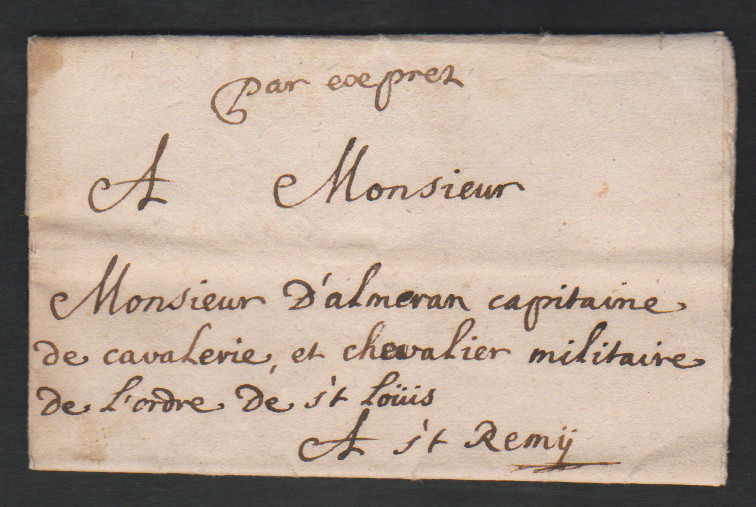 Par exprez
A Monsieur
Monsieur D'almeran capitaine
de cavalerie, et chevalier militaire
de l'ordre de s't loüis
A s't Remÿ